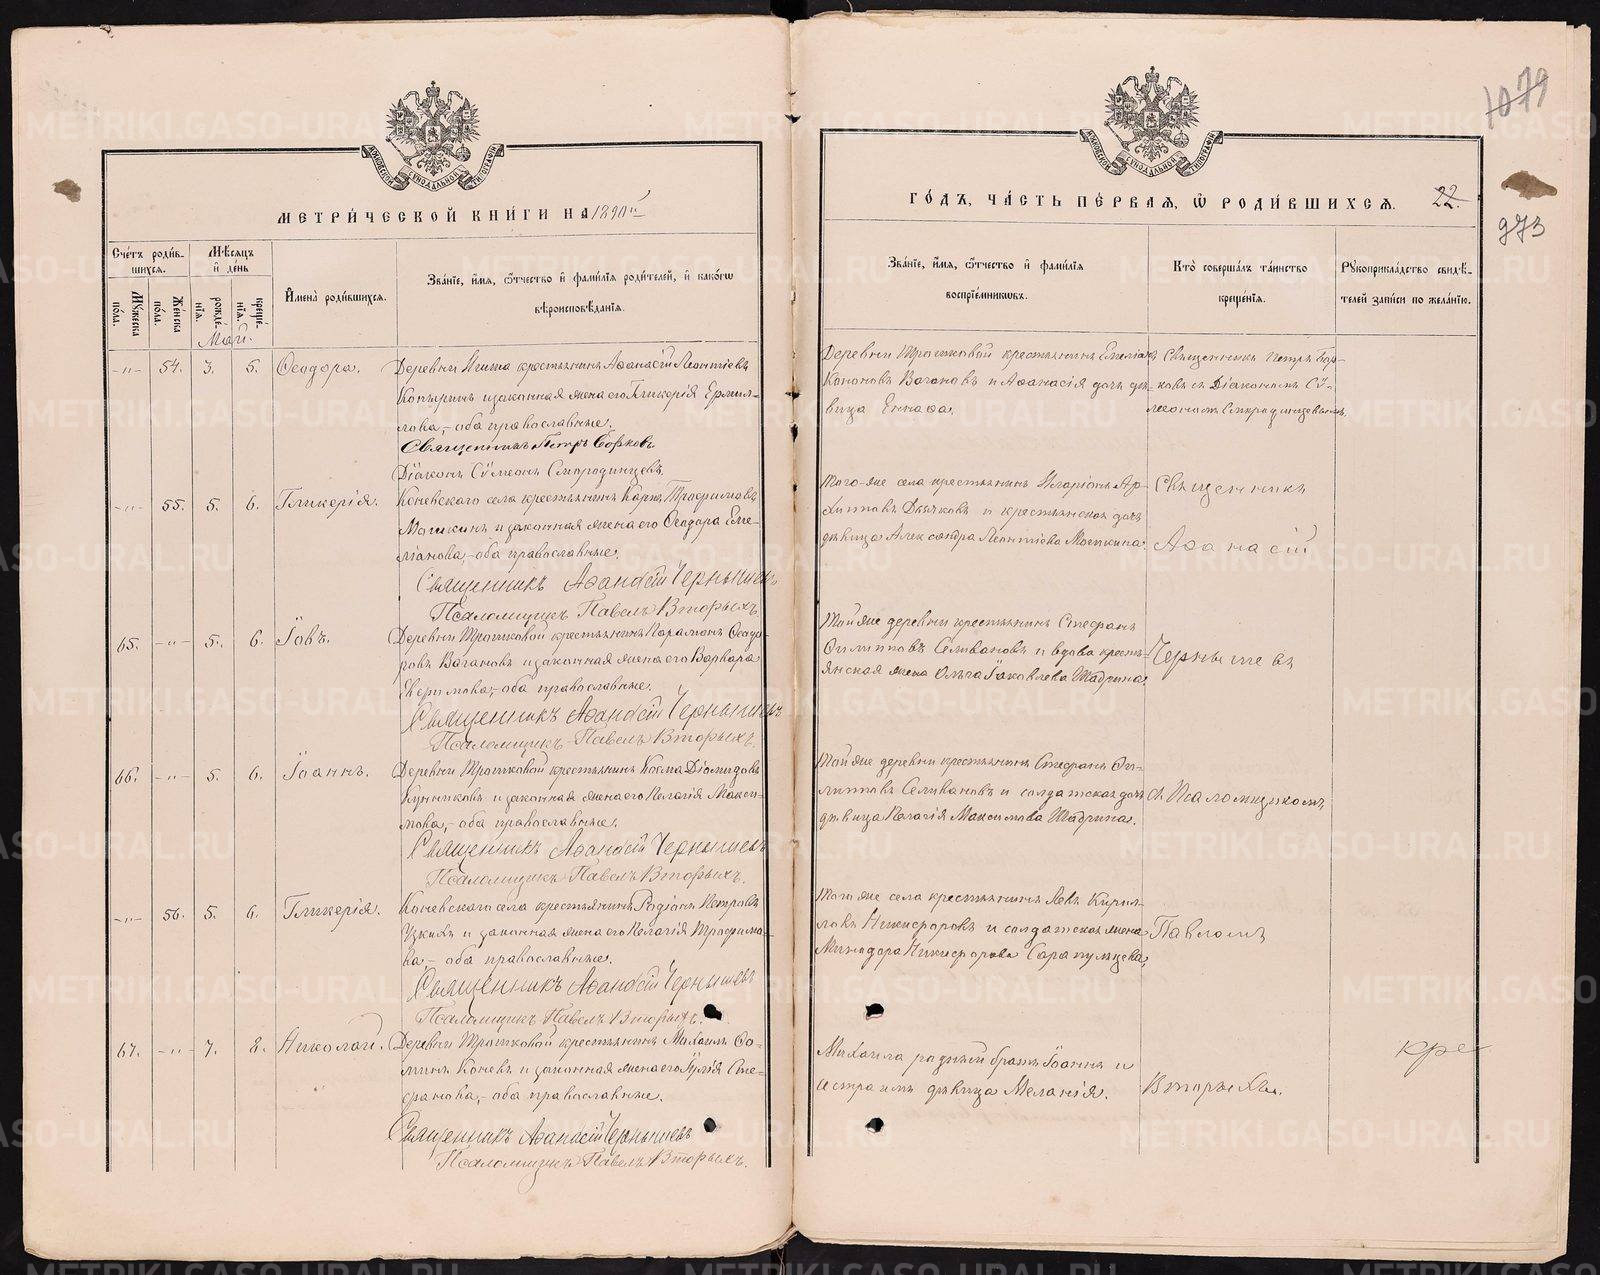 1079
МЕТРИ́ЧЕСКОЙ КНИ́ГИ НА 1890й
ГО́ДЪ, ЧА́СТЬ ПЕ́РВАѦ, Ѿ РОДИ́ВШИХСѦ.
22.
973
Сче́тъ роди́в-
шихсѧ.
Мѣ́сѧцъ
и҆ де́нь
Мꙋ́жеска
по́ла.
Же́нска
по́ла.
рожде́-
нїѧ.
креще́-
нїѧ.
И҆мена̀ роди́вшихсѧ.
Зва́нїе, и҆́мѧ, ѻ҆́тчество и҆ фами́лїѧ роди́телей, и҆ како́гѡ
вѣроисповѣ́данїѧ.
Зва́нїе, и҆́мѧ, ѻ҆́тчество и҆ фами́лїѧ
воспрїе́мникѡвъ.
Кто̀ соверша́лъ та́инство
креще́нїѧ.
Рꙋкоприкла́дство свидѣ́-
телей за́писи по жела́нїю.
Май.
-"- 54. 3. 5. Ѳеодора.
Деревни крестьянинъ Аѳанасій Леонтіевъ
Копыринъ и законная жена его Гликерія Ермил-
лова,- оба православные.
Священникъ Петръ Борковъ
Діаконъ Сѵмеонъ Смородинцевъ
Деревни Трошковой крестьянинъ Емеліанъ
Кононовъ Вагановъ и Аѳанасія дочь дѣ-
вица
Священникъ Петръ Бор-
ковъ съ Діакономъ Сѵ-
меономъ Смородинцевымъ.
-"- 55. 5. 6. Гликерія.
Коневскаго села крестьянинъ Карпъ Трофимовъ
Мошкинъ и законная жена его Ѳеодора Еме-
ліанова,- оба православные.
Священникъ Аѳанасій Чернышевъ
Псаломщикъ Павелъ Вторыхъ
Того-же села крестьянинъ Иларіонъ Ар-
хиповъ Дьяковъ и крестьянская дочь
дѣвица Александра Леонтіева Мошкина.
Священникъ
Аѳанасій
65. -"- 5. 6. Іовъ.
Деревни Трошковой крестьянинъ Парамонъ Ѳеодо-
ровъ Вагановъ и законная жена его Варвара
Ефимова,- оба православные.
Священникъ Аѳанасій Чернышевъ
Псаломщикъ Павелъ Вторыхъ.
Той же деревни крестьянинъ Стефанъ
Филипповъ Селивановъ и вдова кресть-
янская жена Ольга Іаковлева Шадрина.
Чернышевъ
66. -"- 5. 6. Іоаннъ.
Деревни Трошковой крестьянинъ Косма Діомидовъ
и законная жена его Пелагія Макси-
мова,- оба православные.
Священникъ Аѳанасій Чернышевъ
Псаломщикъ Павелъ Вторыхъ.
Той же деревни крестьянинъ Стефанъ Фи-
липповъ Селивановъ и солдатская дочь
дѣвица Пелагія Максимова Шадрина.
съ Псаломщикомъ
-"- 56. 5. 6. Гликерія.
Коневскаго села крестьянинъ Родіонъ Петровъ
Узкихъ и законная жена его Пелагія Трофимо-
ва - оба православные.
Священникъ Аѳанасій Чернышевъ
Псаломщикъ Павелъ Вторыхъ.
Того же села крестьянинъ Левъ Кирил-
ловъ Никифоровъ и солдатская жена
Минодора Никифорова Сарапульцева.
Павломъ
67. -"- 7. 8. Николай.
Деревни Трошковой крестьянинъ Михаилъ Ѳо-
минъ Коневъ и законная жена его Іулія Сте-
фанова,- оба православные.
Священникъ Аѳанасій Чернышевъ
Псаломщикъ Павелъ Вторыхъ.
Михаила родный братъ Іоаннъ и
сестра имъ дѣвица Меланія.
Вторыхъ.
кре